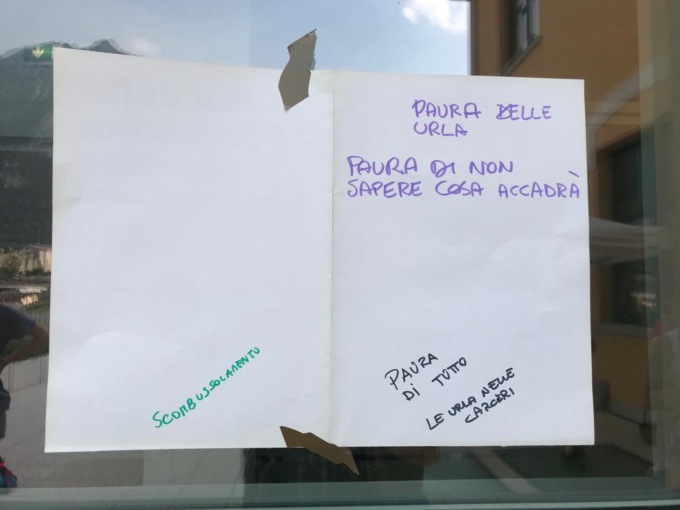 PAURA DELLE
URLA
PAURA DI NON
SAPERE COSA ACCADRÀ
SCOMBUSSOLAMENTO
PAURA
DI TUTTO
LE URLA NELLE
CARCERI